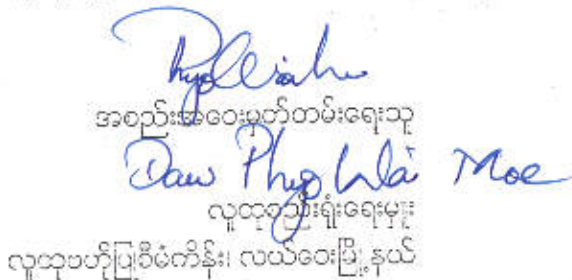 အစည်းအဝေးမှတ်တမ်းရေးသူ
Daw Phyo Wai Moe
လူထုစည်းရုံးရေးမှူး
လူထုဗဟိုပြုစီမံကိန်း၊ လယ်ဝေးမြို့နယ်